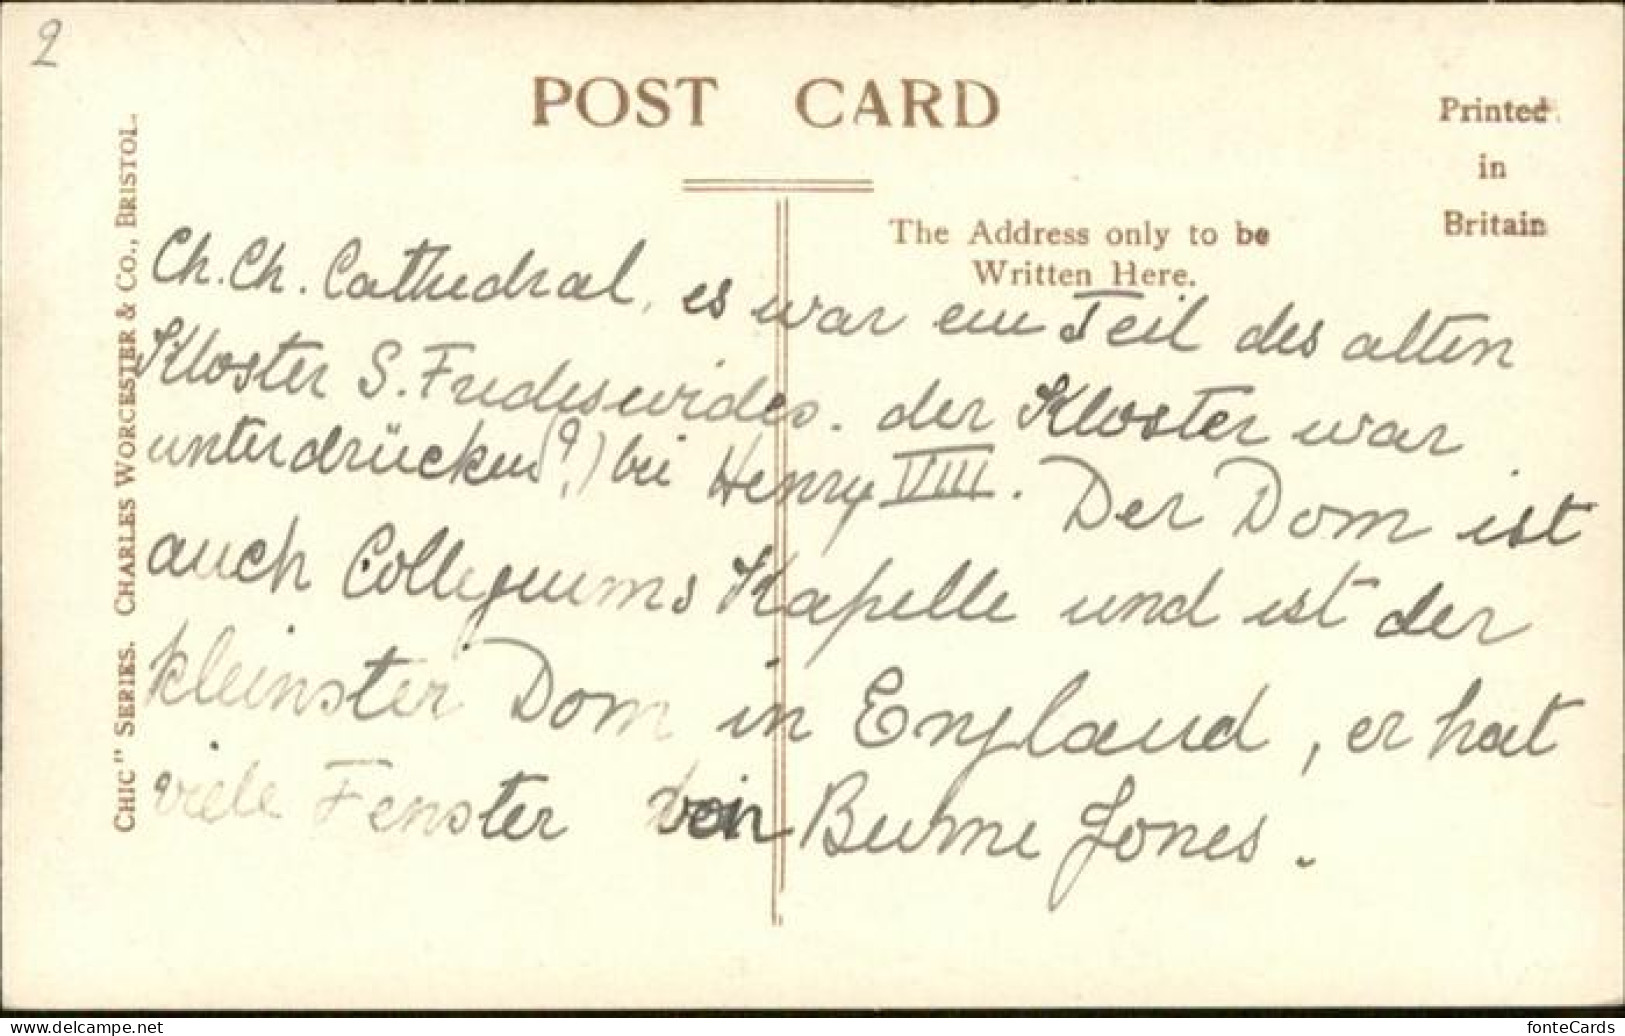 2
POST CARD
Printed
in
Britain
The Address only to be
Written Here.
CHIC" SERIES. CHARLES WORCESTER & CO., BRISTOL.
Ch. Ch. Cathedral, es war ein Teil des alten
Kloster S. Fredeswides. der Kloster war
unterdrücken(?) bei Henry VIII. Der Dom ist
auch Collegiums Kapelle und ist der
kleinster Dom in England, er hat
viele Fenster von Burne Jones.
https://www.delcampe.net
fonteCards